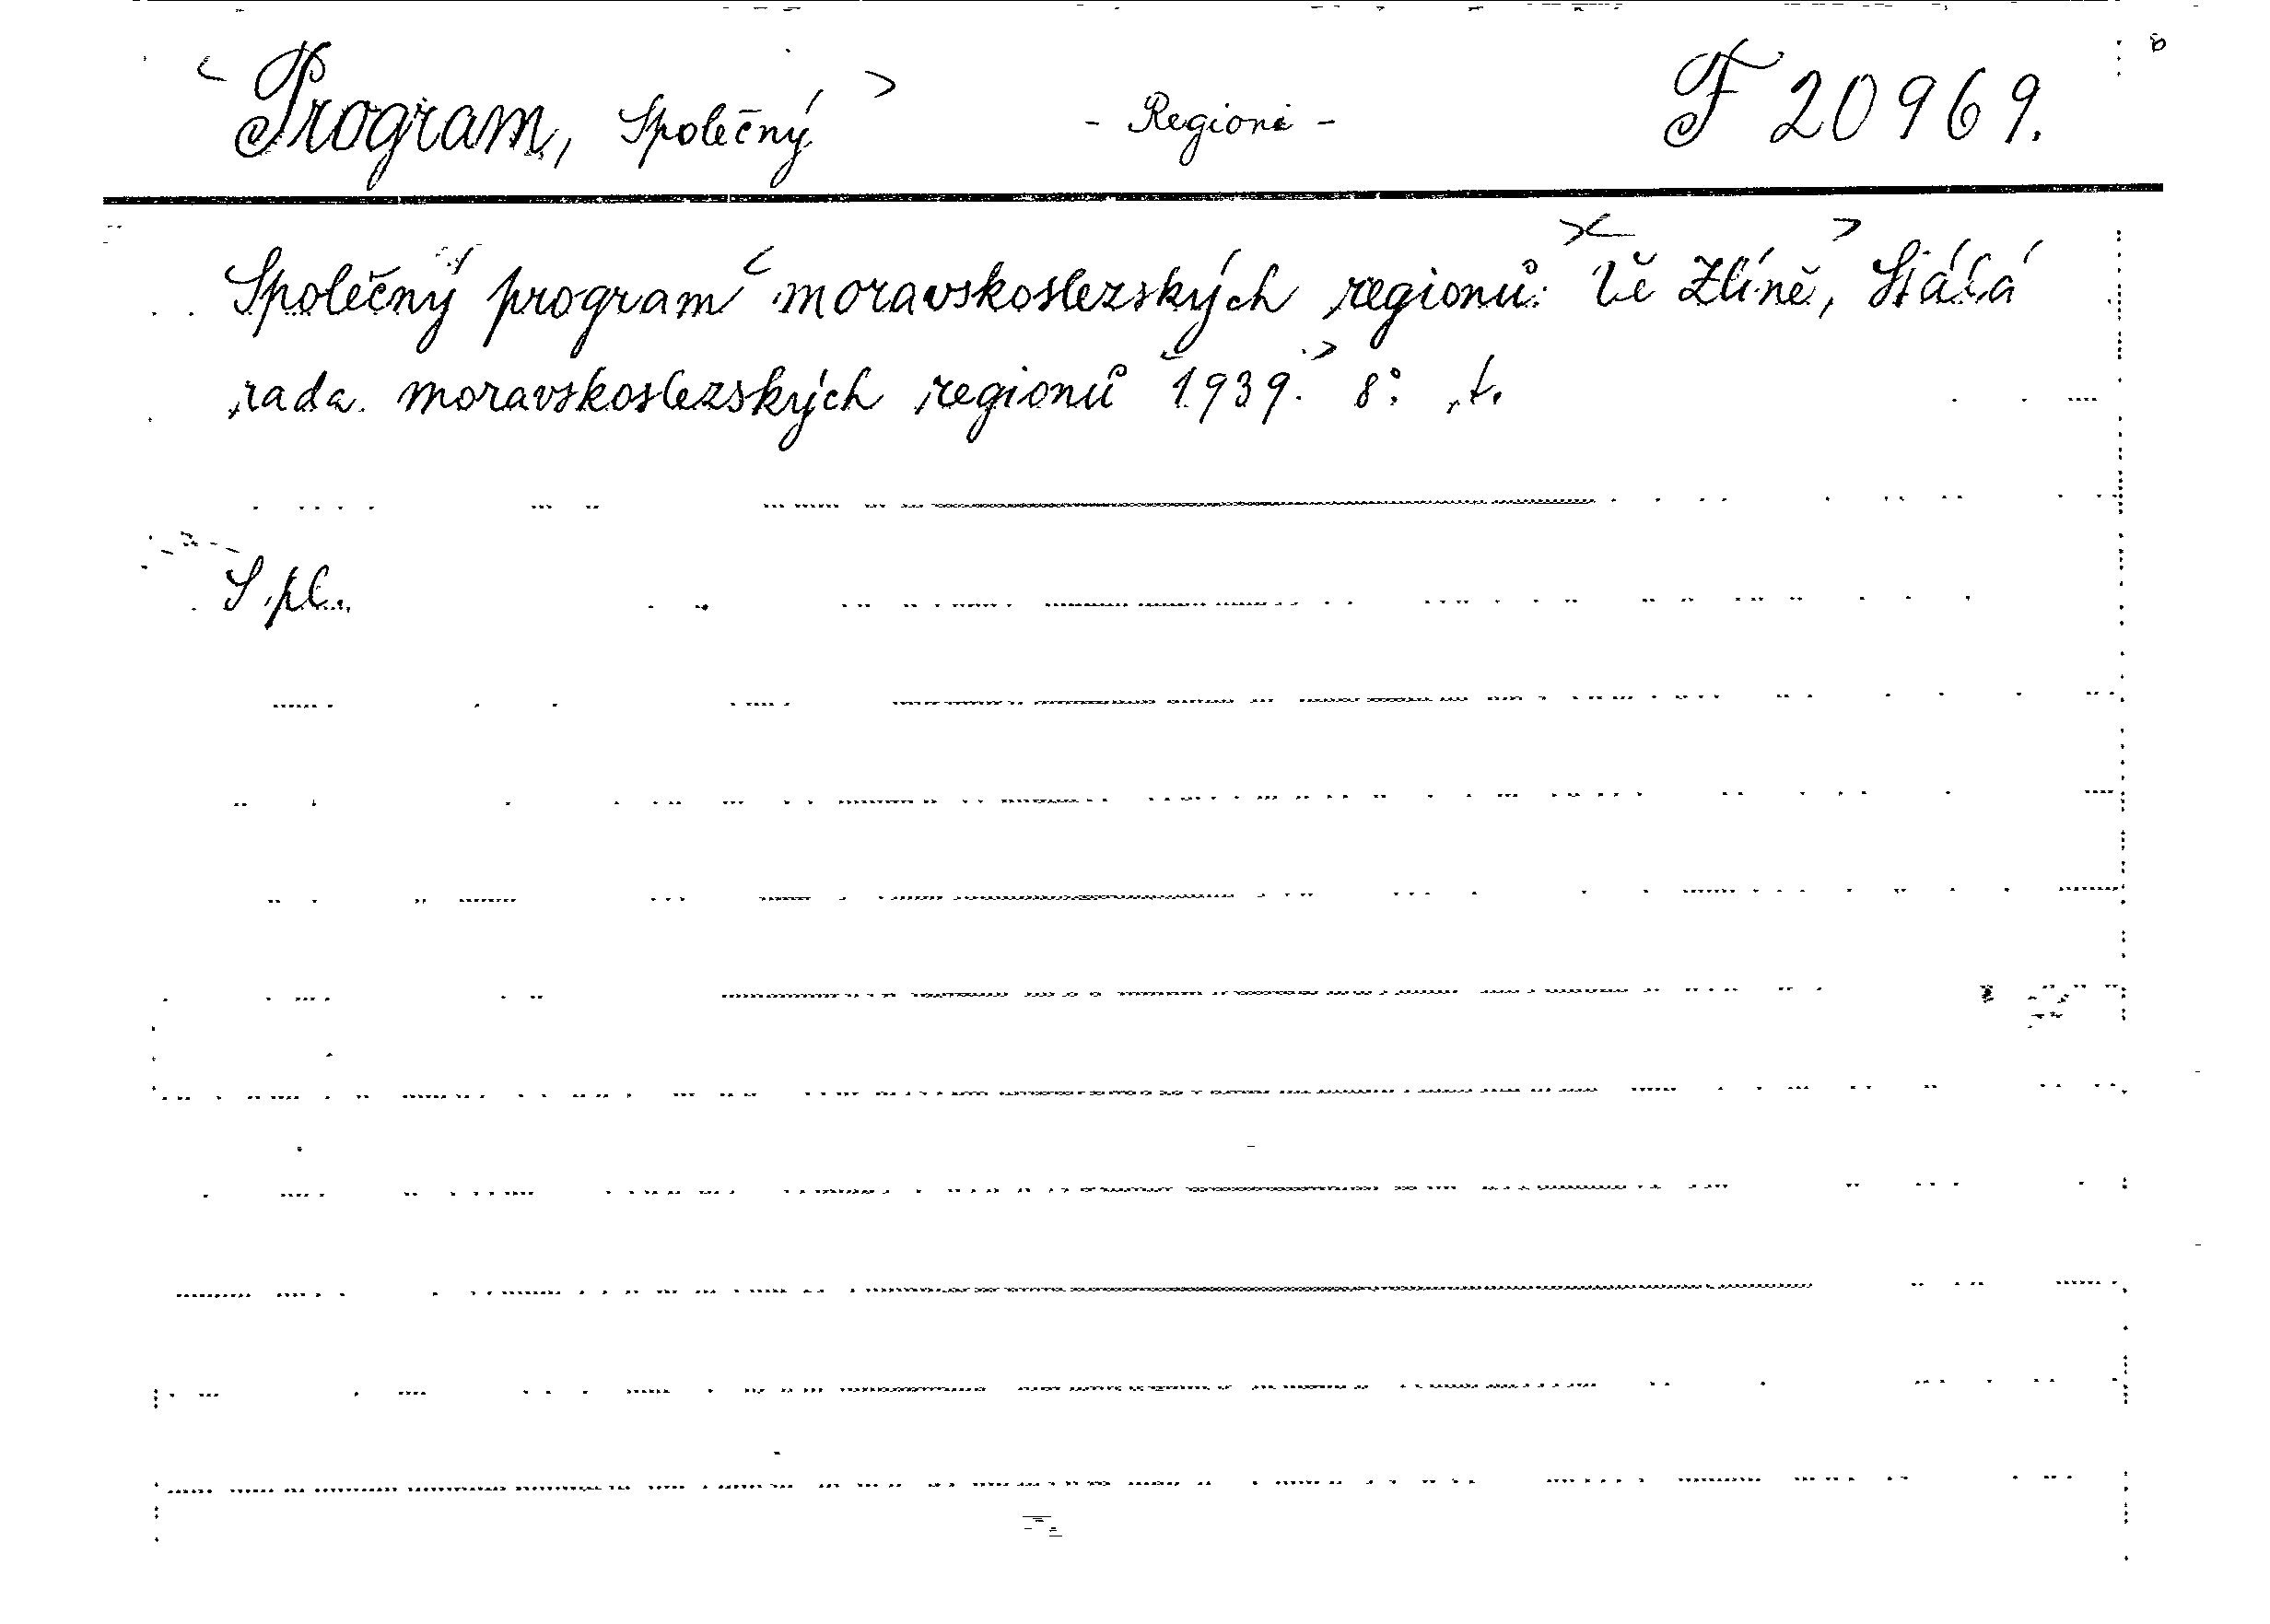 Program, Společný - Regioni - F 20969.
Společný program moravskoslezských regionů. Ve Zlíně, Stálá
rada moravskoslezských regionů 1939. 8° t.
S pl.